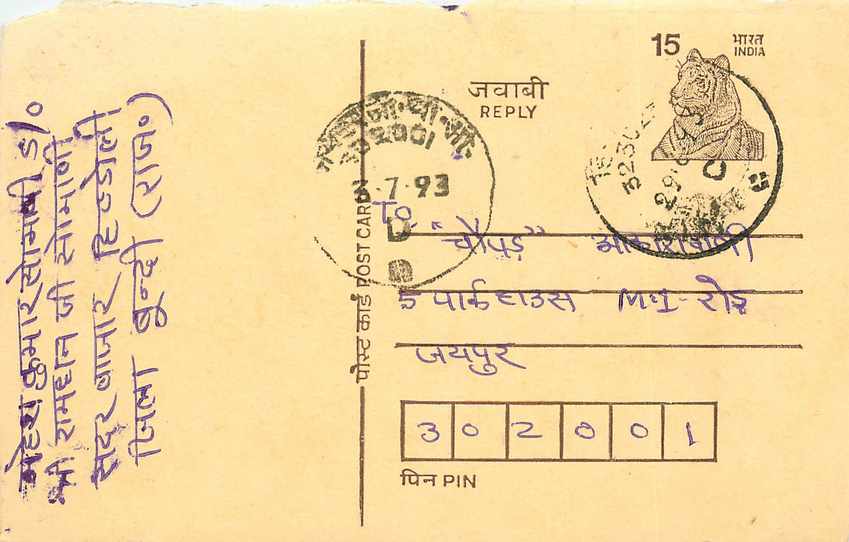 महेश कुमार सोमाणी S/o
श्री रामधन जी सोमाणी
सदर बाजार हिण्डोली
जिला बून्दी (राज०)
पोस्ट कार्ड POST CARD
जवाबी
REPLY
15
भारत
INDIA
जी.पी.ओ.
302001
3.7.93
D
323024
29
93
To
"चौपड़" आकाशवाणी
5 पार्क हाउस M.I-रोड़
जयपुर
3 0 2 0 0 1
पिन PIN